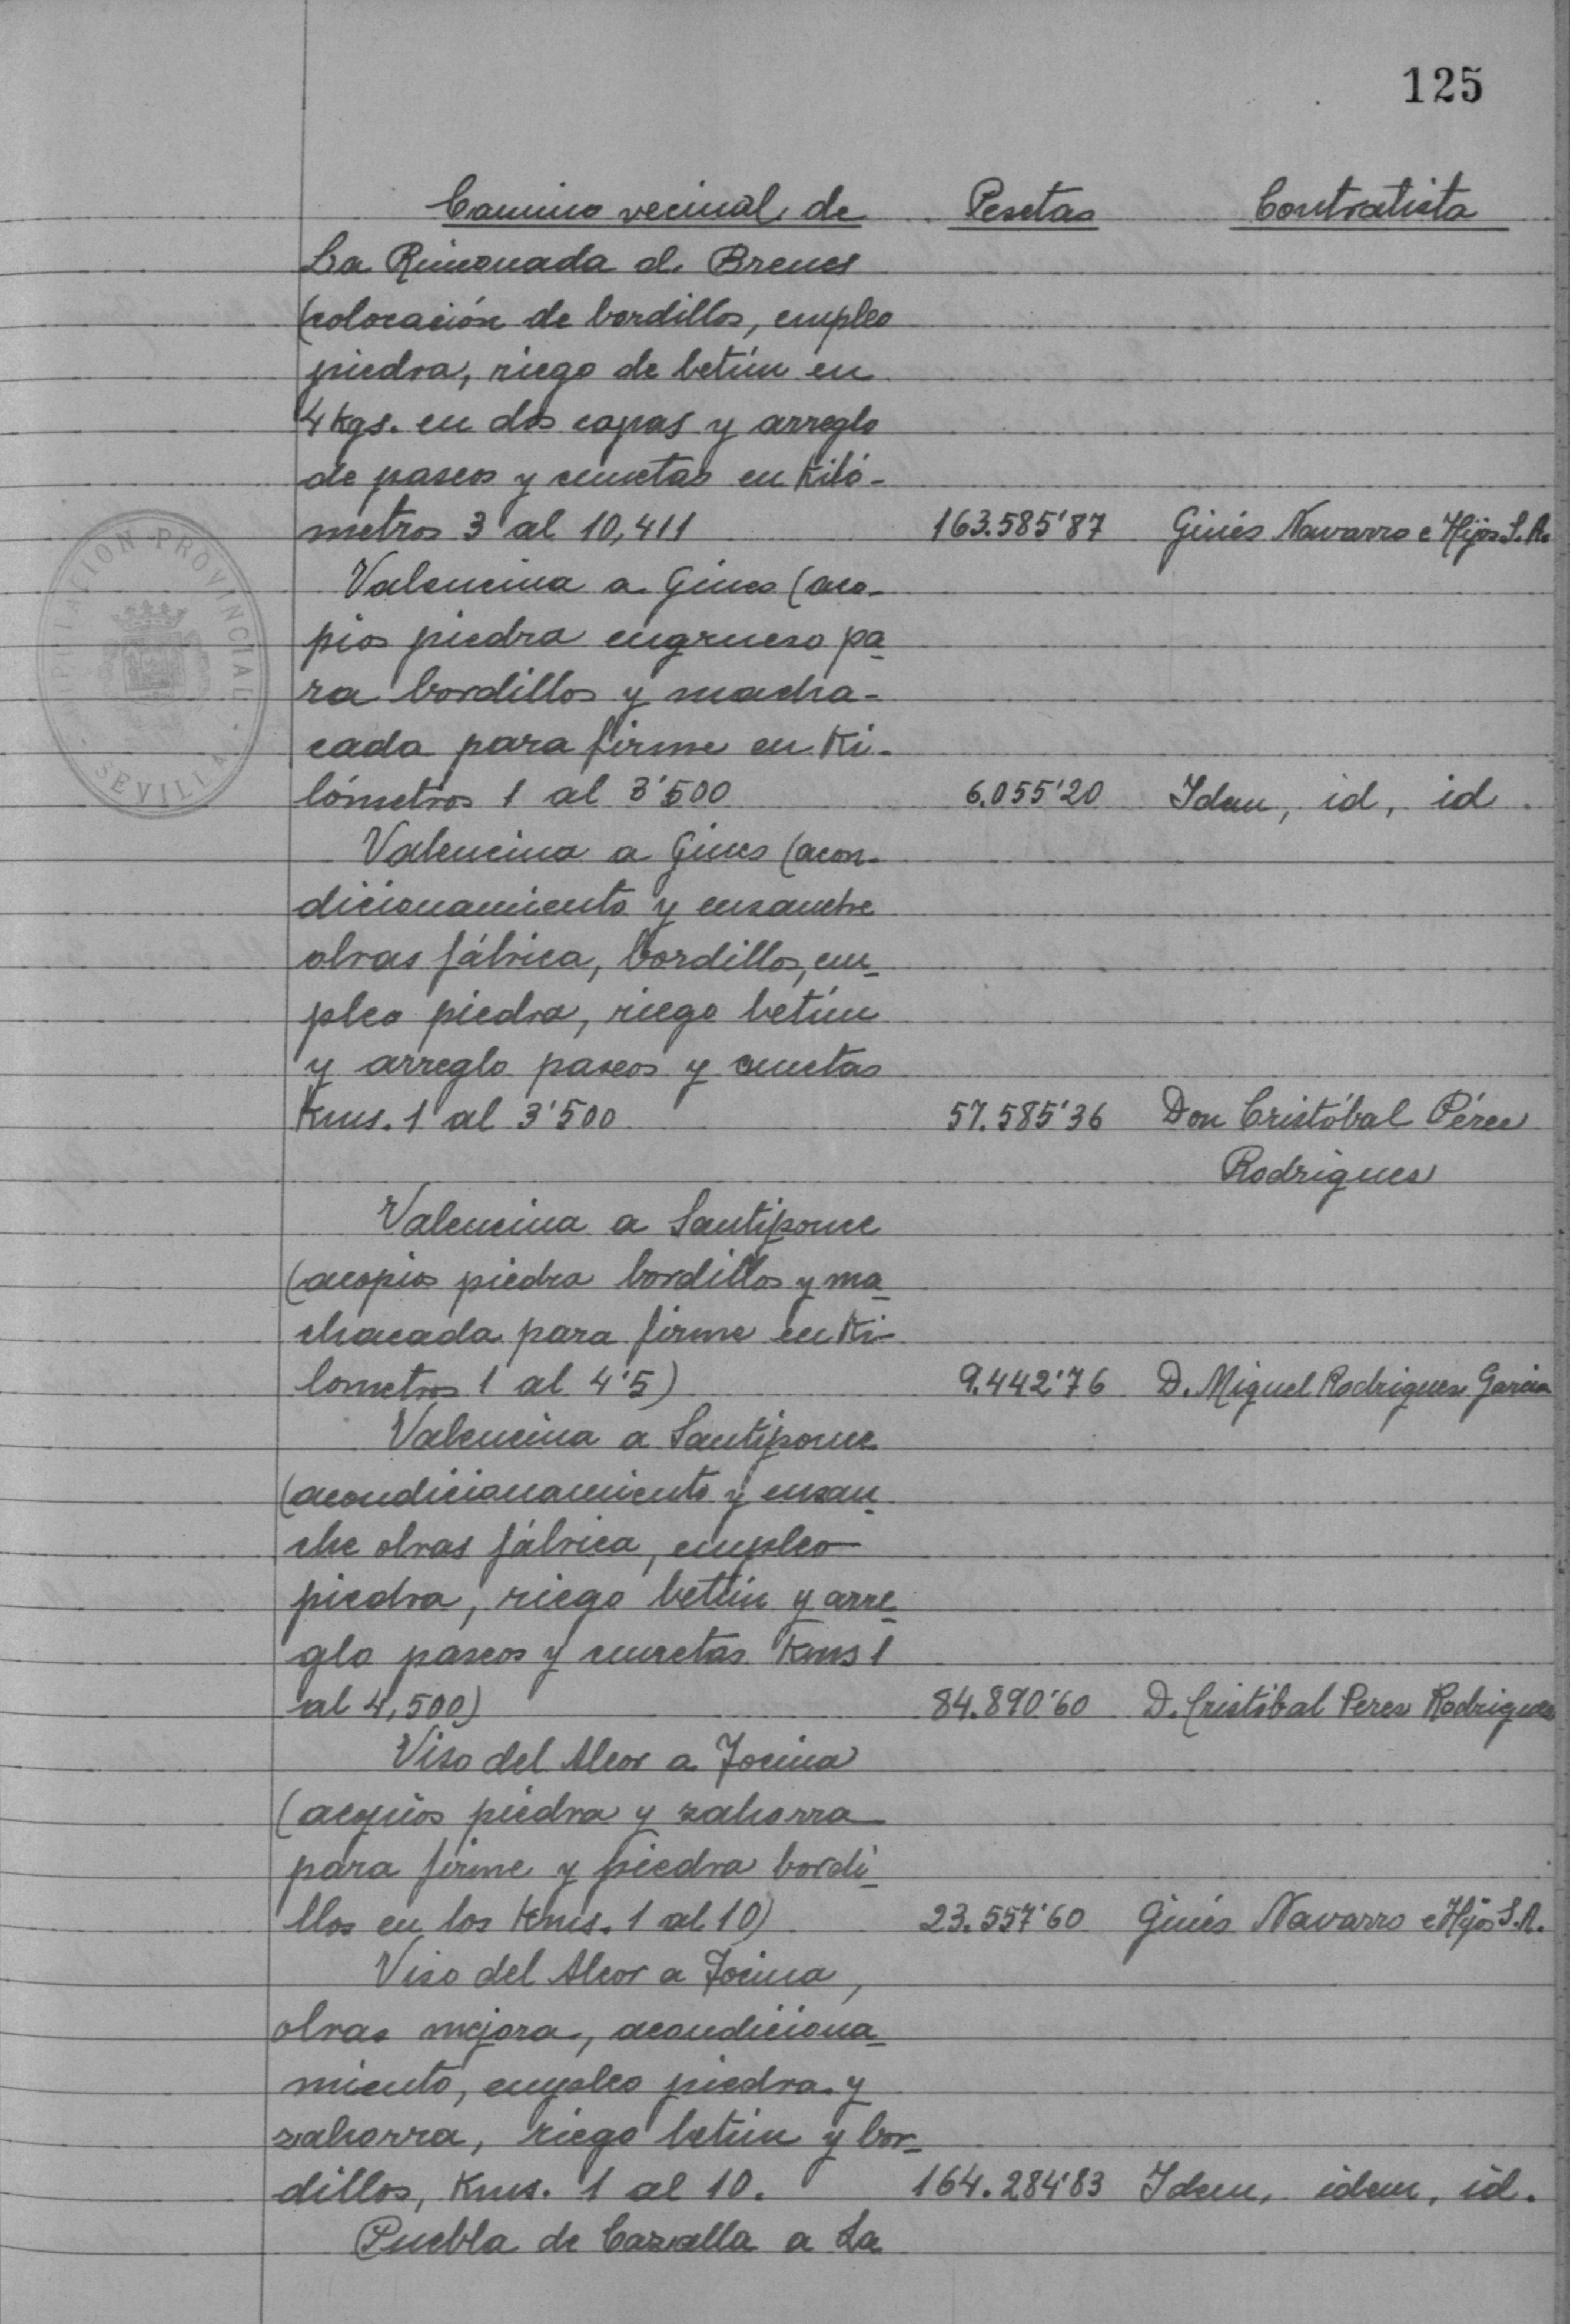 125
Camino vecinal de Pesetas Contratista
La Rinconada a Brenes
(colocación de bordillos, empleo
piedra, riego de betún en
4 kgs. en dos capas y arreglo
de paseos y cunetas en kiló-
metros 3 al 10,411 163.585'87 Ginés Navarro e Hijos S.A.
Valencina a Gines (aco-
pios piedra engrueso pa-
ra bordillos y macha-
cada para firme en Ki-
lómetros 1 al 3'500 6.055'20 Idem, id, id.
Valencina a Gines (acon-
dicionamiento y ensanche
obras fábrica, bordillos, em-
pleo piedra, riego betún
y arreglo paseos y cunetas
Kms. 1 al 3'500 57.585'36 Don Cristóbal Pérez
Rodriguez
Valencina a Santiponce
(acopios piedra bordillos y ma-
chacada para firme en Ki-
lometros 1 al 4'5) 9.442'76 D. Miguel Rodriguez Garcia
Valencina a Santiponce
(acondicionamiento y ensan-
che obras fábrica, empleo
piedra, riego betún y arre-
glo paseos y cunetas Kms 1
al 4,500) 84.890'60 D. Cristóbal Perez Rodriguez
Viso del Alcor a Tocina
(acopios piedra y zahorra
para firme y piedra bordi-
llos en los Kms. 1 al 10) 23.557'60 Ginés Navarro e Hijos S.A.
Viso del Alcor a Tocina,
obras mejora, acondiciona-
miento, empleo piedra y
zahorra, riego betún y bor-
dillos, Kms. 1 al 10. 164.284'83 Idem, idem, id.
Puebla de Cazalla a La
DIPUTACION PROVINCIAL
SEVILLA